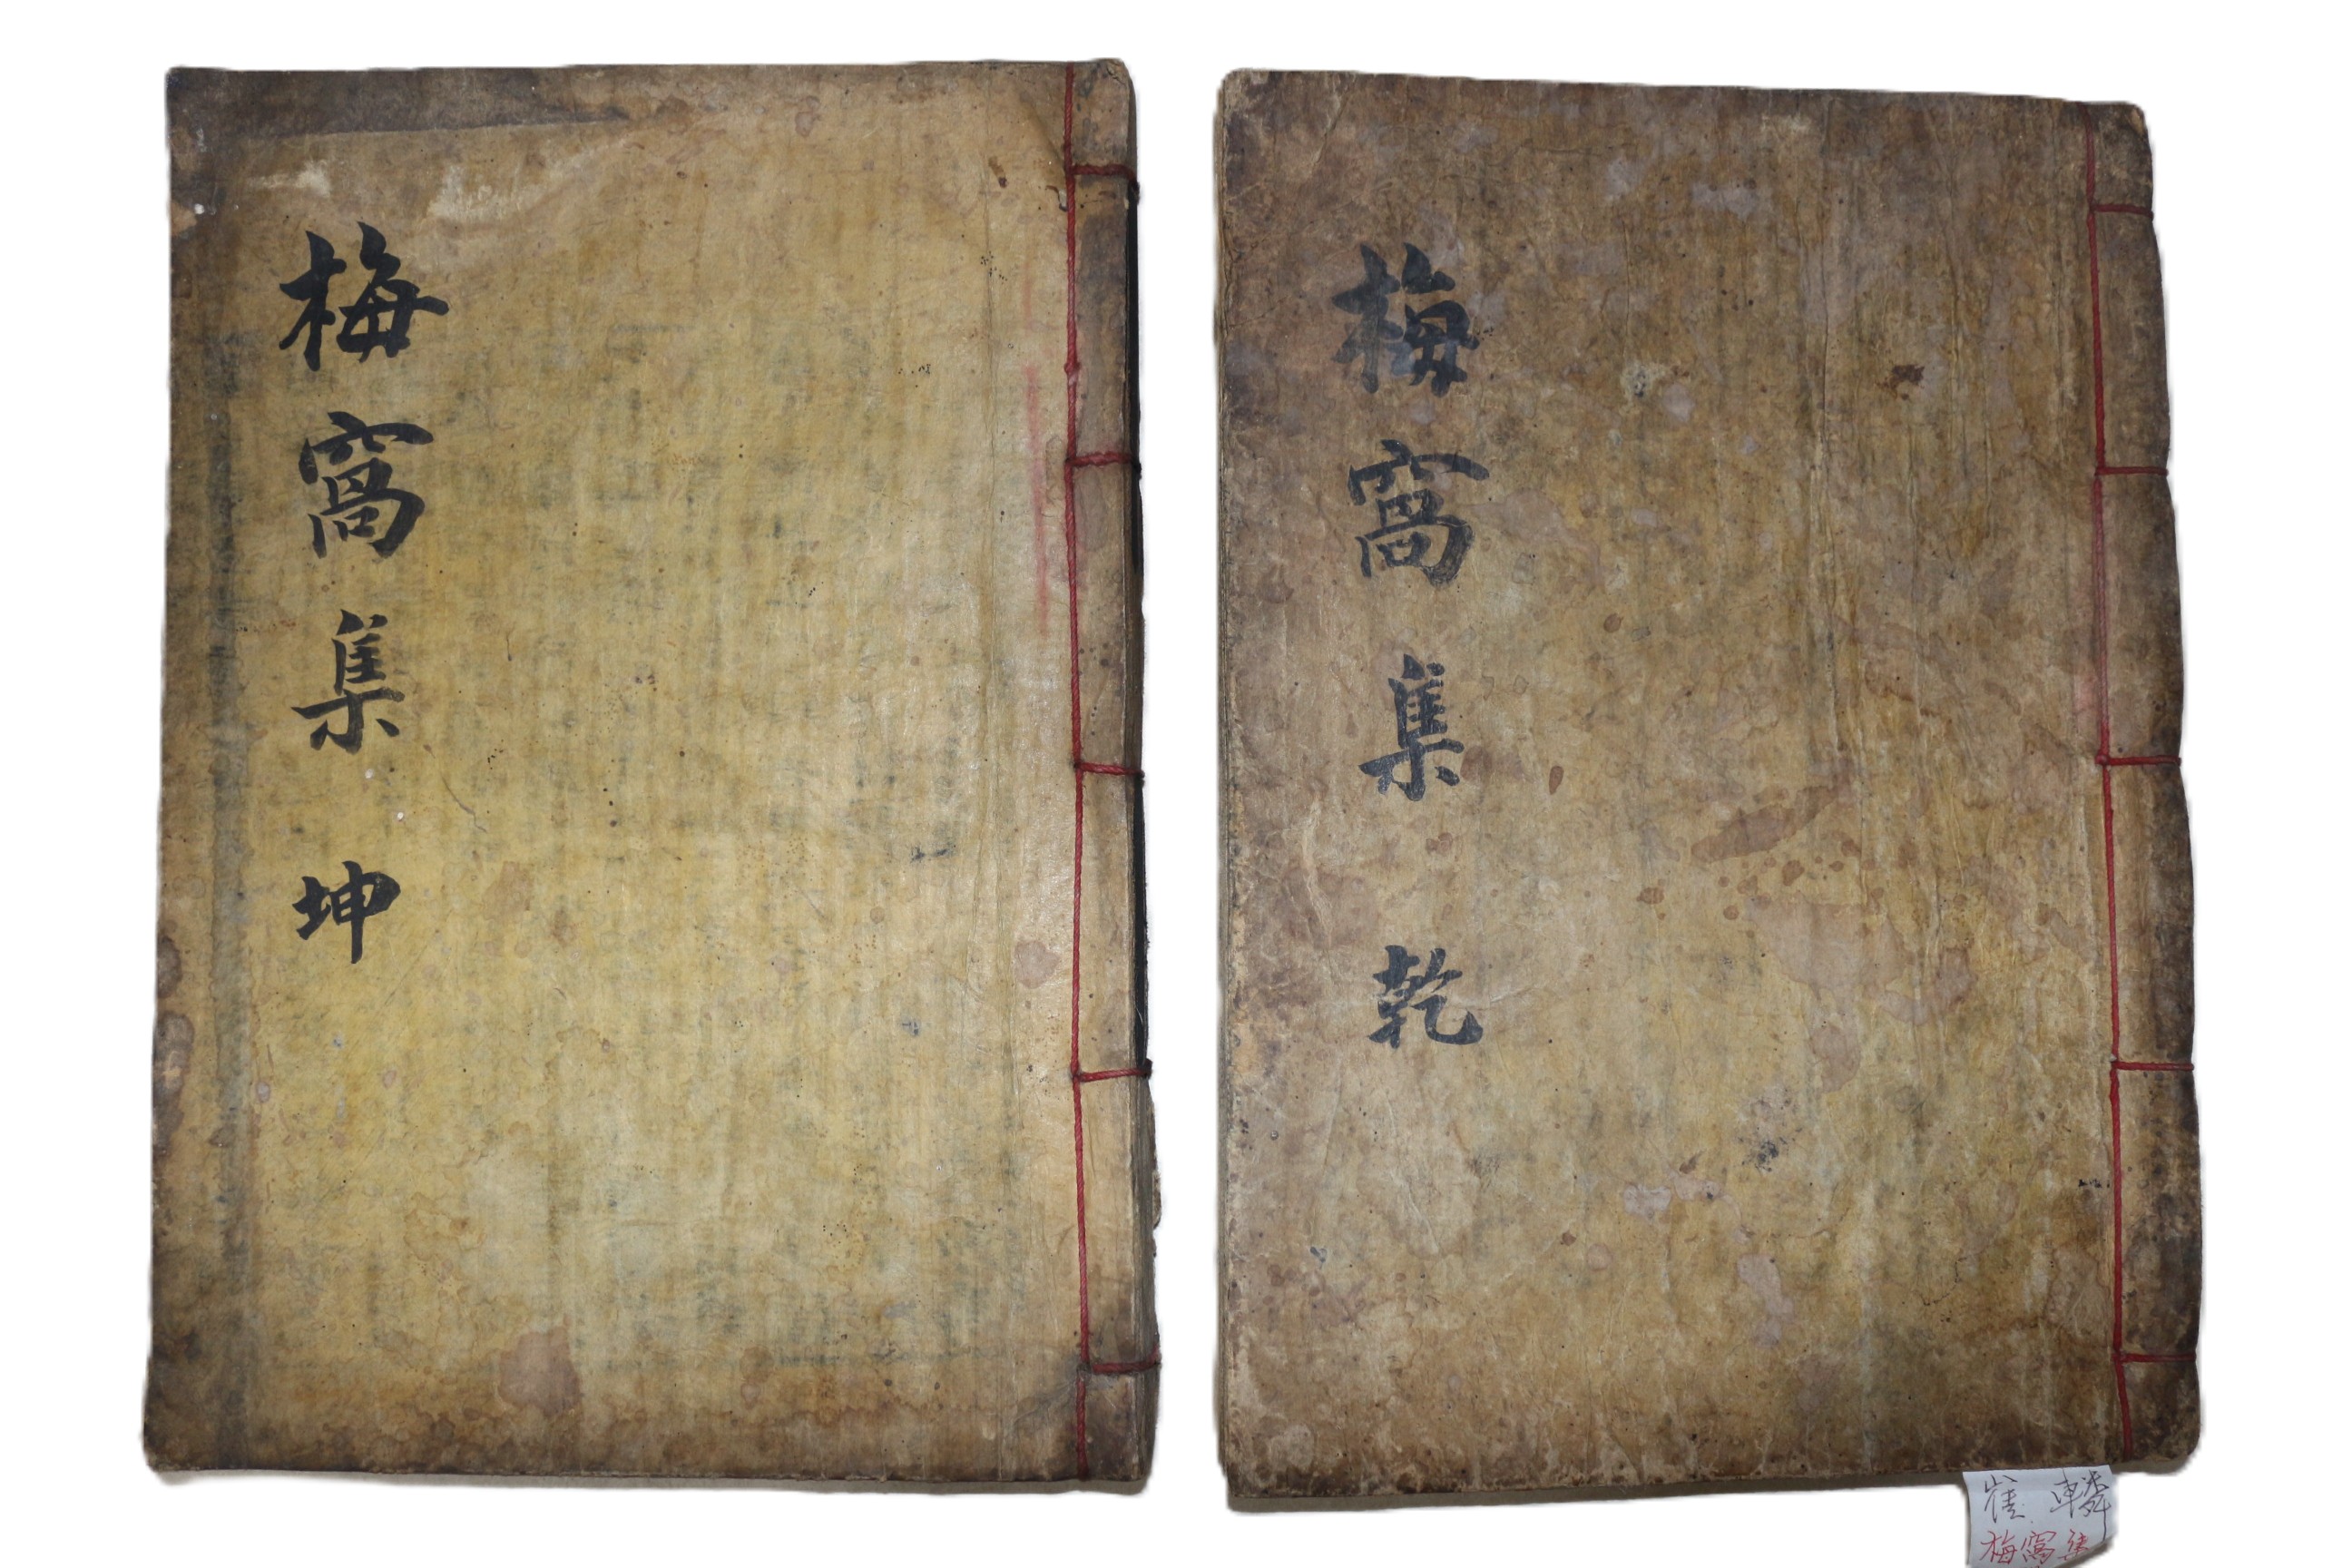 梅窩集 乾
梅窩集 坤
崔 轔
梅窩集